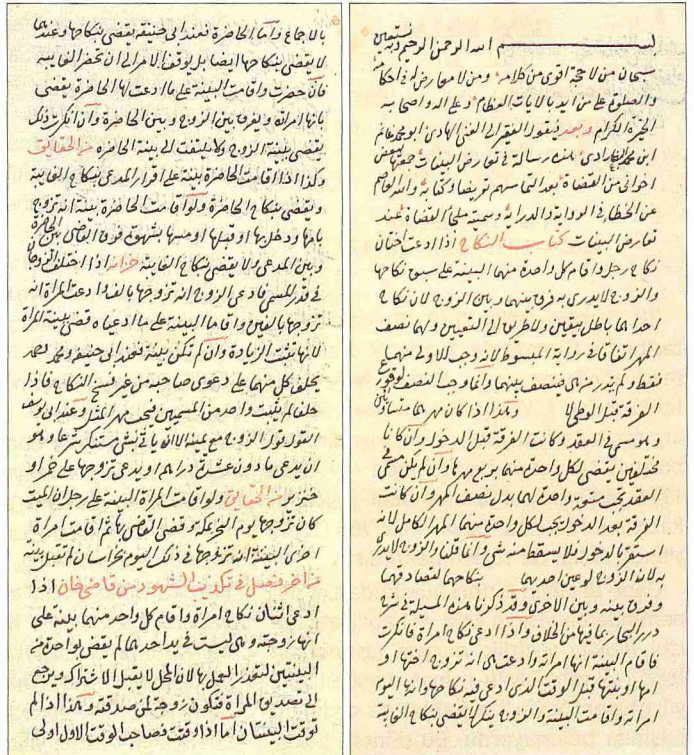 بسم الله الرحمن الرحيم وبه نستعين
سبحان من لا حجة اقوى من كلامه ومن لا معارض له في احكامه
والصلوة على من ايد بالايات العظام وعلى اله واصحابه
الخيرة الكرام وبعد فيقول الفقير الى الغني الهادي ابو محمد غانم
ابن محمد البغدادي هذه رسالة في تعارض البينات جمعتها لبعض
اخواني من القضاة بعد التماسهم تعريضا وكتابة والله العاصم
عن الخطاء في الرواية والدراية وسميته ملجأ القضاة عند
تعارض البينات كتاب النكاح اذا ادعت اختان
نكاح رجل واقام كل واحدة منهما البينة على سبق نكاحها
والزوج لا يدري به فرق بينهما وبين الزوج لان نكاح
احداهما باطل بيقين ولا طريق الى التعيين ولهما نصف
المهر اتفاقا في رواية المبسوط لانه وجب للاولى منهما
فقط ولم يدر من هي فينصف بينهما وانما وجب النصف لوقوع
الفرقة قبل الوطئ وهذا اذا كان مهرهما متساويين
وهو مسمى في العقد وكانت الفرقة قبل الدخول وان كانا
مختلفين يقضى لكل واحدة منهما بربع مهرها وان لم يكن مسمى في
العقد تجب متعة واحدة لهما بدل نصف المهر وان كانت
الفرقة بعد الدخول يجب لكل واحدة منهما المهر الكامل لانه
استقر بالدخول فلا يسقط منه شئ وانما قلنا والزوج لا يدري
به لان الزوج لو عين احديهما بنكاحهما لتصادقهما
وفرق بينه وبين الاخرى وقد ذكرنا هذه المسئلة في شرح
درر البحار بما فيها من الخلاف واذا ادعى نكاح امراة فانكرت
فاقام البينة انها امراته وادعت هي انه تزوج اختها او
امها او بنتها قبل الوقت الذي ادعى فيه نكاحها وانها اليوم
امراته واقامت البينة والزوج ينكر لا يقضى بنكاح الغايبة
بالاجماع واما الحاضرة فعند ابي حنيفة يقضى بنكاحها وعندهما
لا يقضى بنكاحها ايضا بل يوقف الامر الى ان تحضر الغايبة
فان حضرت واقامت البينة على ما ادعت لها الحاضرة يقضى
بانها امراته ويفرق بين الزوج وبين الحاضرة وان انكرت ذلك
يقضى ببينة الزوج ولا يلتفت الى بينة الحاضرة من الحقايق
وكذا اذا اقامت الحاضرة بينة على اقرار المدعي بنكاح الغايبة
ويقضى بنكاح الحاضرة ولو اقامت الحاضرة بينة انه تزوج
بامها ودخل بها او قبلها او مسها بشهوة فرق القاضي بين الحاضرة
وبين المدعي ولا يقضى بنكاح الغايبة خزانة اذا اختلف الزوجان
في قدر المسمى فادعى الزوج انه تزوجها بالف وادعت المراة انه
تزوجها بالفين واقاما البينة على ما ادعياه قضى ببينة المراة
لانها تثبت الزيادة وان لم تكن بينة فعند ابي حنيفة ومحمد
يحلف كل منهما على دعوى صاحبه من غير فسخ النكاح فاذا
حلفا لم يثبت واحد من المسميين فيجب مهر المثل وعند ابي يوسف
القول قول الزوج مع يمينه الا ان ياتي بشئ مستنكر شرعا وهو
ان يدعي ما دون عشرة دراهم او يدعي تزوجها على خمر او
خنزير من الحقايق ولو اقامت المراة البينة على رجل ان الميت
كان تزوجها يوم النحر بمكة وقضى القاضي بها ثم اقامت امراة
اخرى البينة انه تزوجها في ذلك اليوم بخراسان لم تقبل بينة
من اخر فصل في تكذيب الشهود من قاضي خان اذا
ادعى اثنان نكاح امراة واقام كل واحد منهما بينة على
انها زوجته وهي ليست في يد احدهما لم يقض بواحدة من
البينتين لتعذر العمل بها لان المحل لا يقبل الاشتراك ويرجع
الى تصديق المراة فتكون زوجة لمن صدقته وهذا اذا لم
توقت البينتان اما اذا وقتت فصاحب الوقت الاول اولى